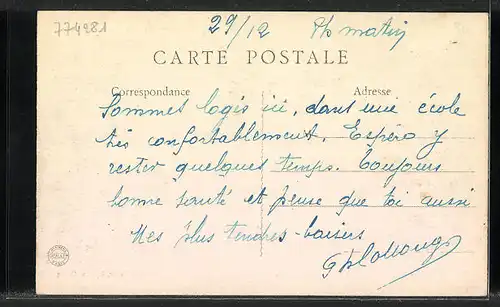 774281
29/12 7h matin
CARTE POSTALE
Correspondance Adresse
Sommes logés ici, dans une école
très confortablement. Espère y
rester quelques temps. Toujours
bonne santé et pense que toi aussi
Mes plus tendres baisers